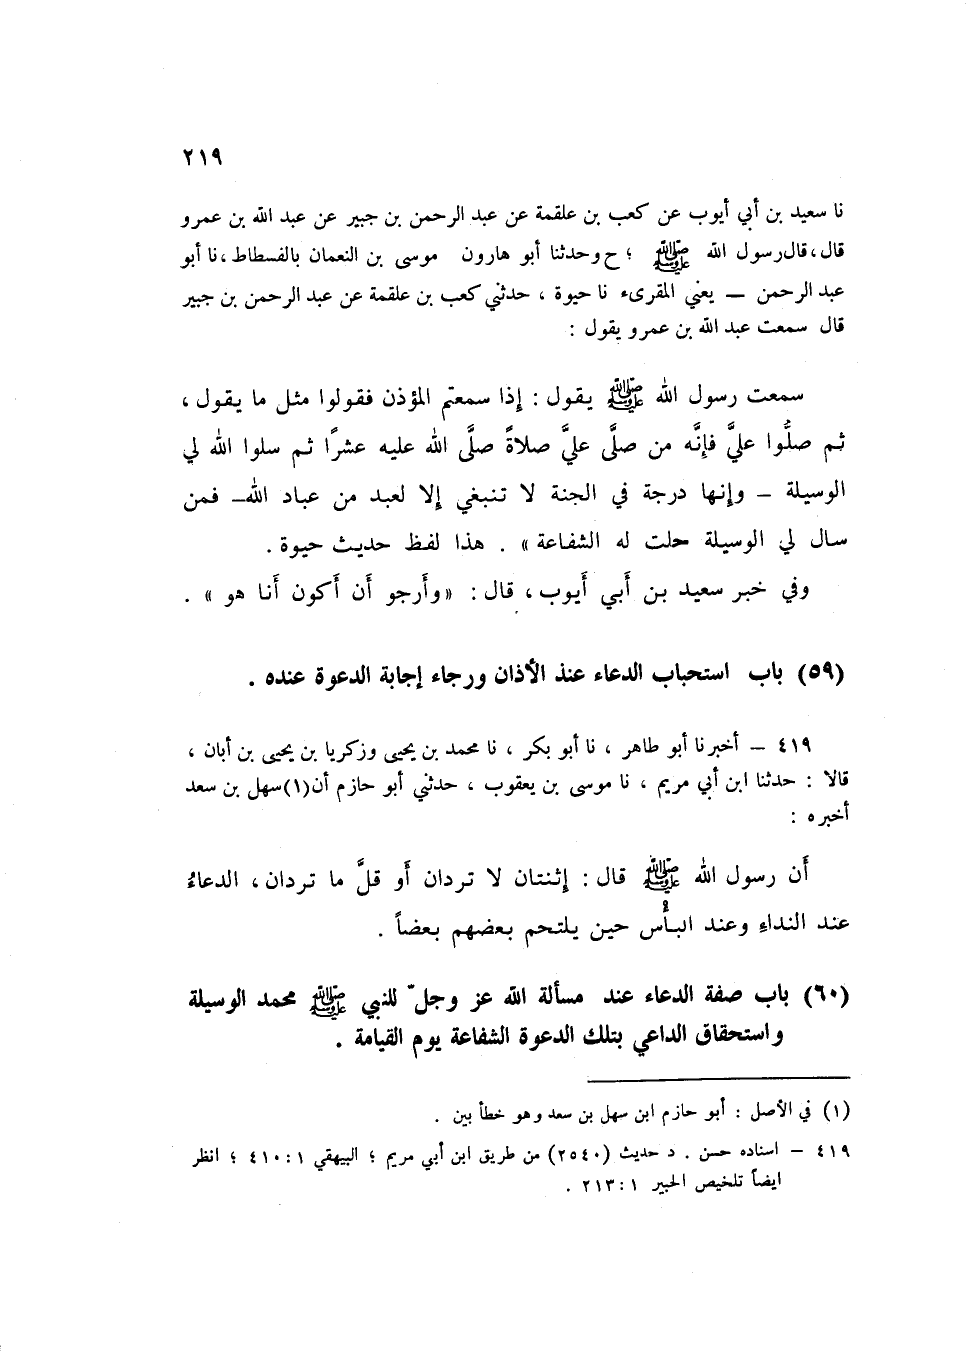 ٢١٩
نا سعيد بن أبي أيوب عن كعب بن علقمة عن عبد الرحمن بن جبير عن عبد الله بن عمرو
قال ، قال رسول الله ﷺ ؛ ح وحدثنا أبو هارون موسى بن النعمان بالفسطاط ، نا أبو
عبد الرحمن – يعني المقرىء نا حيوة ، حدثني كعب بن علقمة عن عبد الرحمن بن جبير
قال سمعت عبد الله بن عمرو يقول :
سمعت رسول الله ﷺ يقول : إذا سمعتم المؤذن فقولوا مثل ما يقول ،
ثم صلُّوا عليَّ فإنَّه من صلَّى عليَّ صلاةً صلَّى الله عليه عشرًا ثم سلوا الله لي
الوسيلة – وإنها درجة في الجنة لا تنبغي إلا لعبد من عباد الله – فمن
سال لي الوسيلة حلت له الشفاعة » . هذا لفظ حديث حيوة .
وفي خبر سعيد بن أبي أيوب ، قال : « وأرجو أن أكون أنا هو » .
(٥٩) باب استحباب الدعاء عنذ الأذان ورجاء إجابة الدعوة عنده .
٤١٩ – أخبرنا أبو طاهر ، نا أبو بكر ، نا محمد بن يحيى وزكريا بن يحيى بن أبان ،
قالا : حدثنا ابن أبي مريم ، نا موسى بن يعقوب ، حدثني أبو حازم أن(١)سهل بن سعد
أخبره :
أن رسول الله ﷺ قال : إثنتان لا تردان أو قلَّ ما تردان ، الدعاءُ
عند النداءِ وعند البأس حين يلتحم بعضهم بعضاً .
(٦٠) باب صفة الدعاء عند مسألة الله عز وجلّ للنبي ﷺ محمد الوسيلة
واستحقاق الداعي بتلك الدعوة الشفاعة يوم القيامة .
(١) في الأصل : أبو حازم ابن سهل بن سعد وهو خطأ بين .
٤١٩ – اسناده حسن . د حديث (٢٥٤٠) من طريق ابن أبي مريم ؛ البيهقي ١ : ٤١٠ ؛ انظر
ايضاً تلخيص الحبير ١ : ٢١٣ .